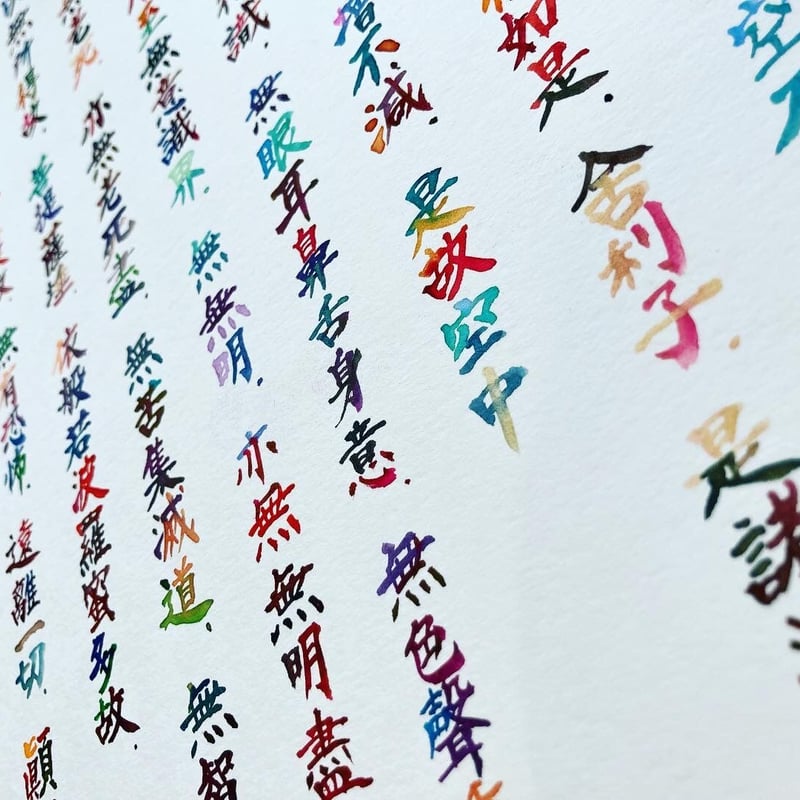 空不
如是.舍利子.是諸
增不減.是故空中
識.無眼耳鼻舌身意.無色聲
至無意識界.無無明.亦無無明盡
老死.亦無老死盡.無苦集滅道.無智
無所得故.菩提薩埵.依般若波羅蜜多故.
無有恐怖.遠離一切.顛